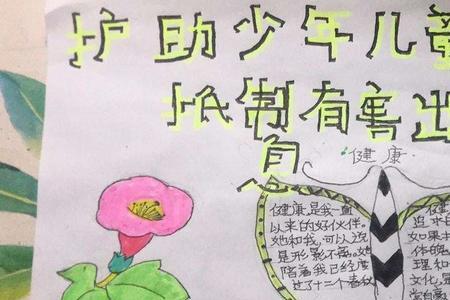 护助少年儿童
抵制有害出
息
健康
健康,是我一直
以来的好伙伴。
她和我,可以说
是形影不离。她
陪着我已经度
过了十二个春秋
健
如果
体
理和
文化,